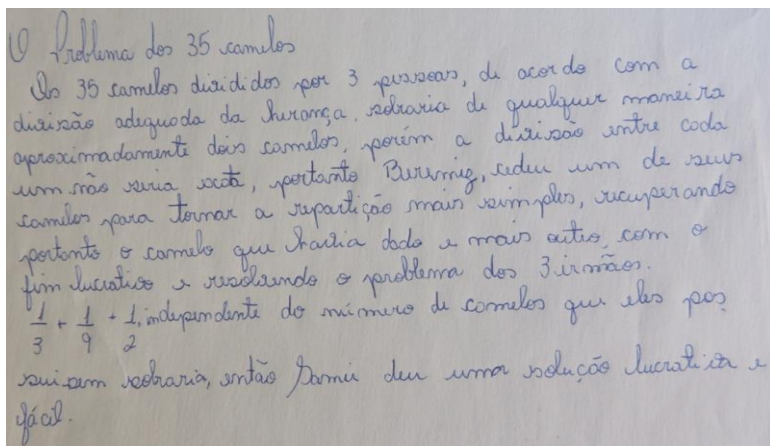 O Problema dos 35 camelos
Os 35 camelos divididos por 3 pessoas, de acordo com a
divisão adequada da herança, sobraria de qualquer maneira
aproximadamente dois camelos, porém a divisão entre cada
um não seria exata, portanto Beremiz, cedeu um de seus
camelos para tornar a repartição mais simples, recuperando
portanto o camelo que havia dado e mais outro, com o
fim lucrativo e resolvendo o problema dos 3 irmãos.
1/3 + 1/9 + 1/2, independente do número de camelos que eles pos
suissem sobraria, então Samir deu uma solução lucrativa e
fácil.